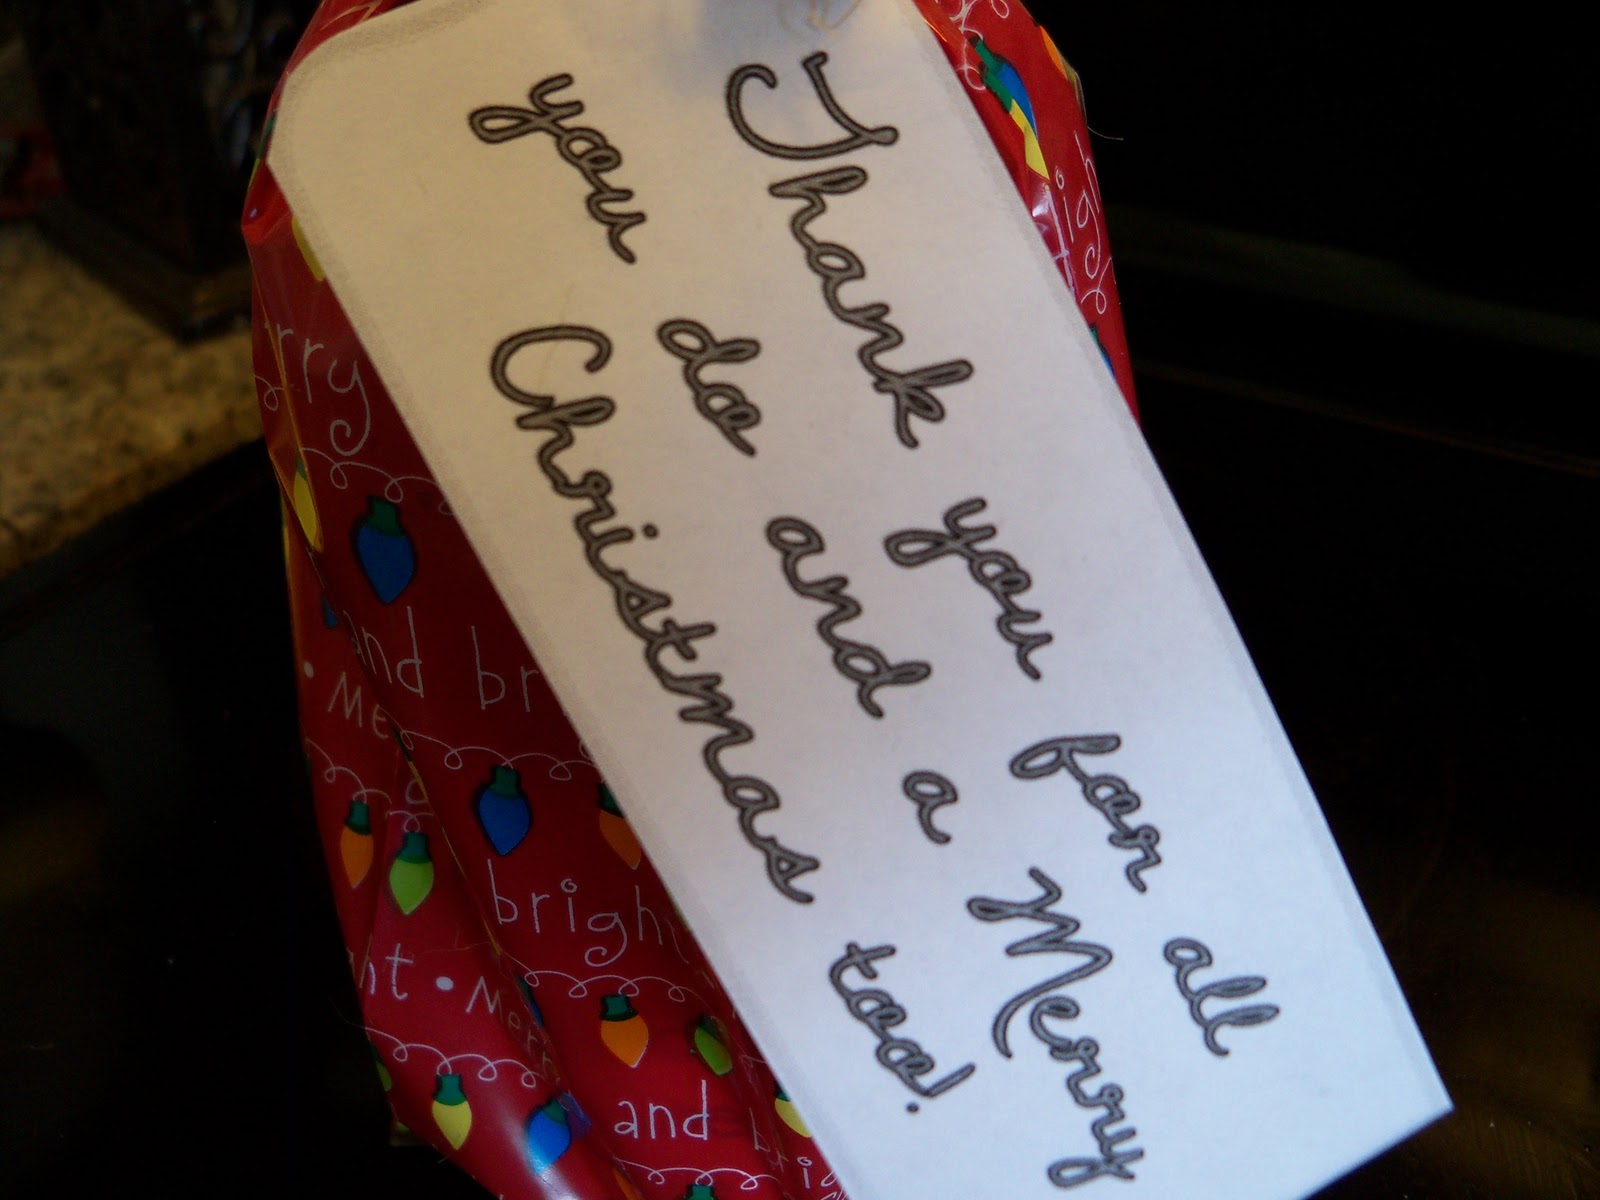 Thank you for all
you do and a Merry
Christmas too!
and
bright
Me
and